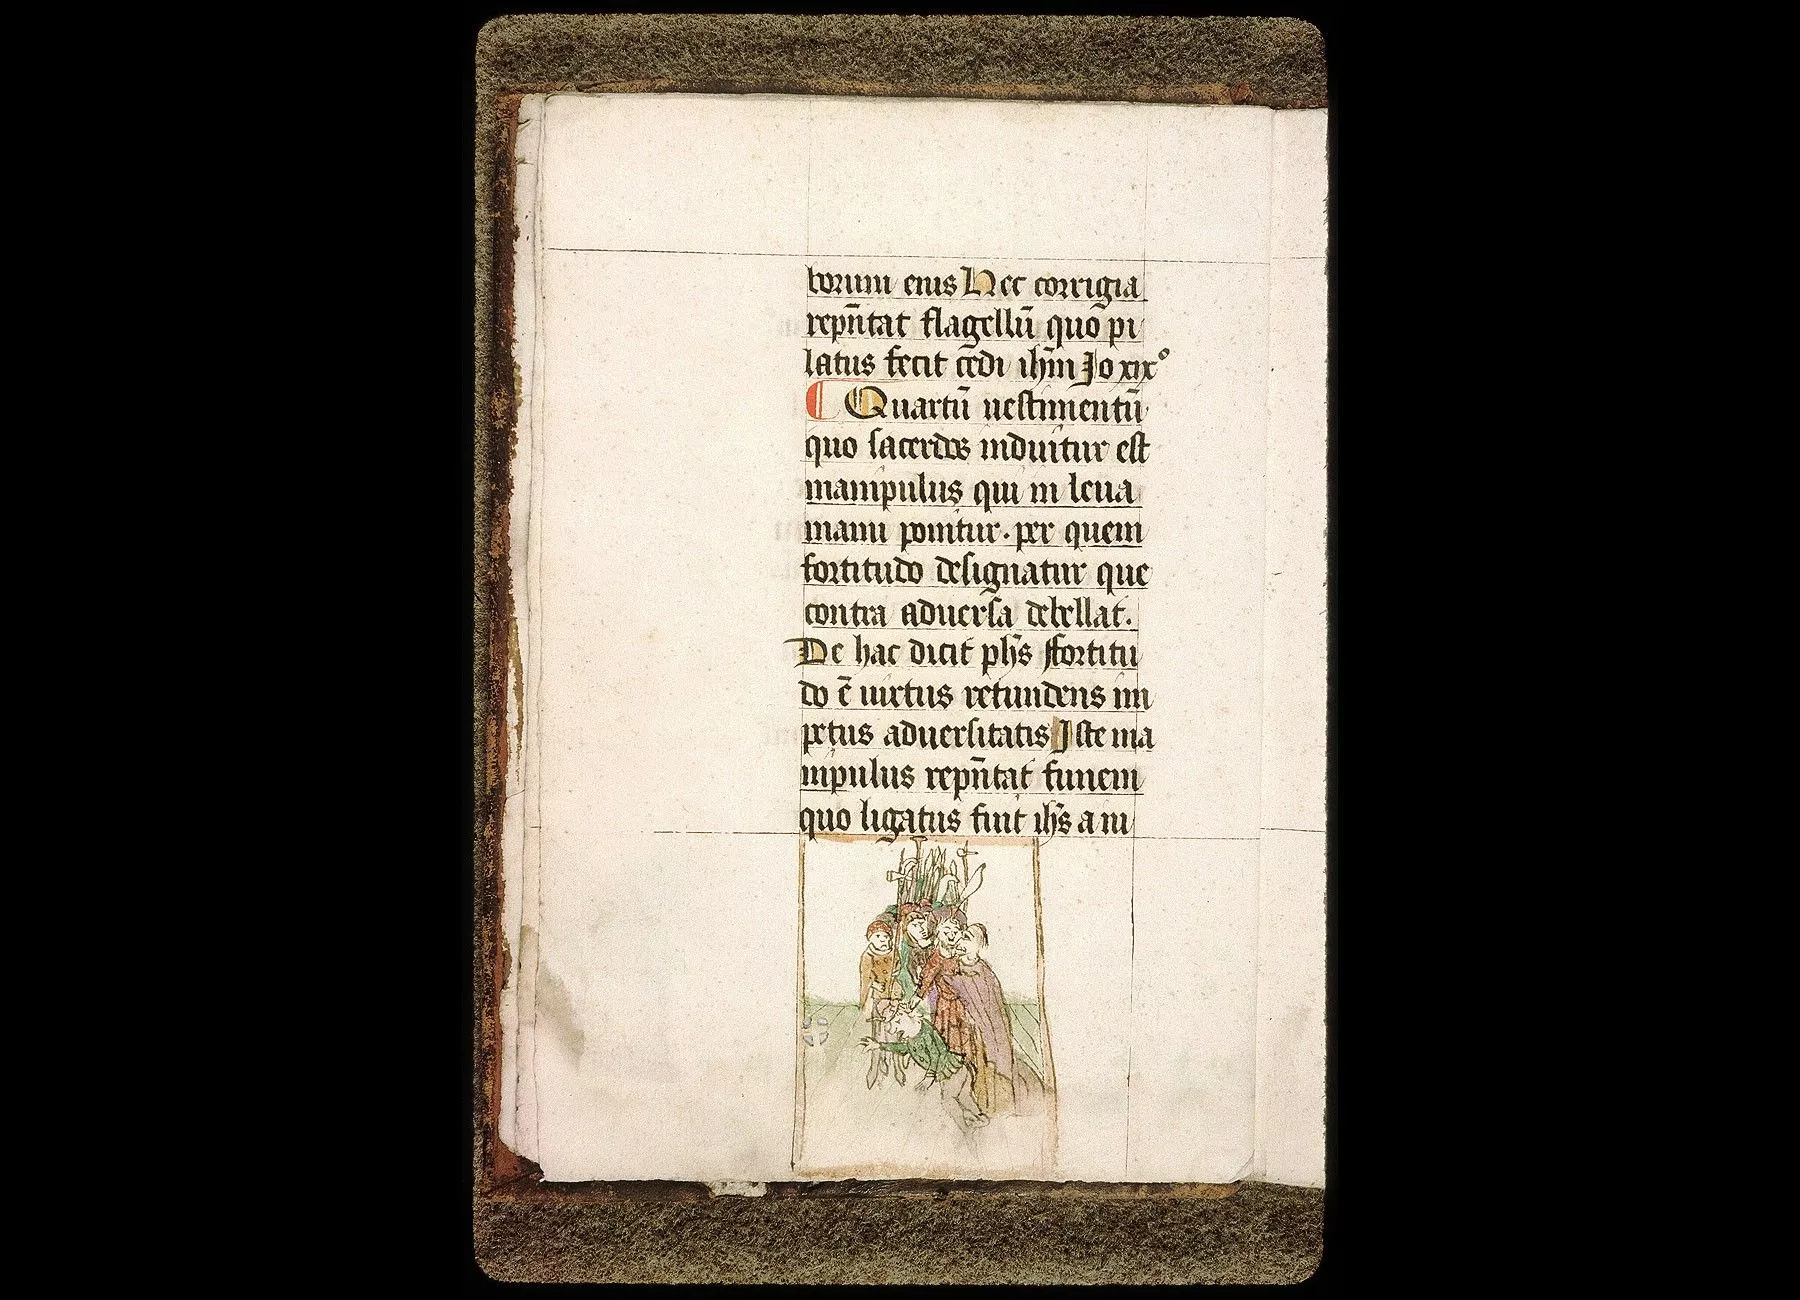 borum eius Hec corrigia
rep̄ntat flagellū quo pi
latus fecit cedi ihm̄ Jo xix°
Quartū uestimentū
quo sacerdos induitur est
manipulus qui in leua
manu ponitur. per quem
fortitudo designatur que
contra aduersa debellat.
De hac dicit phs̄ ffortitu
do ē uirtus retundens im
petus aduersitatis Iste ma
nipulus rep̄ntat funem
quo ligatus fuit ihs̄ a m